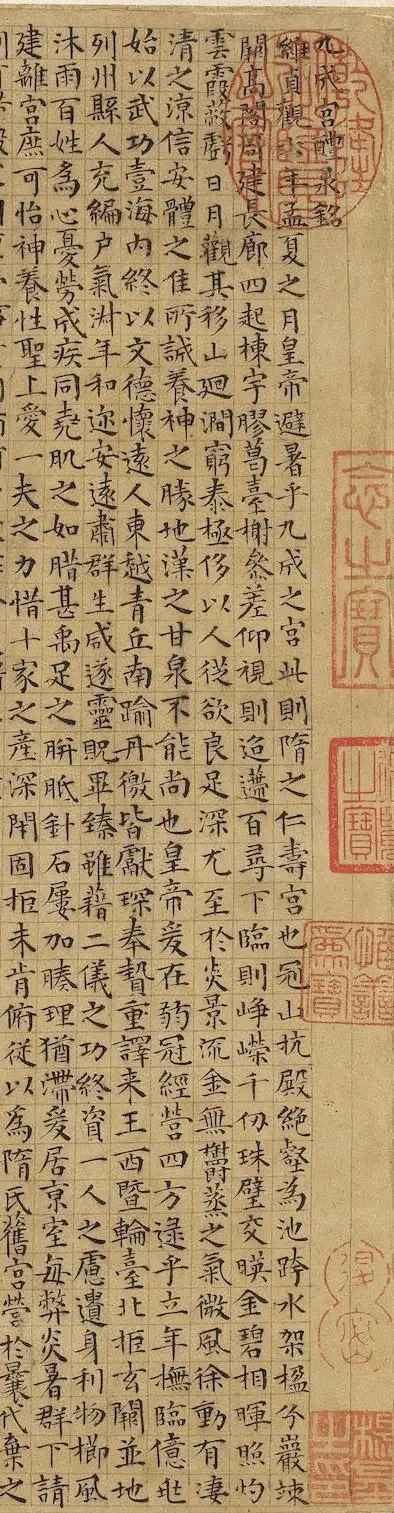 九成宮醴泉銘
維貞觀六年孟夏之月皇帝避暑乎九成之宮此則隋之仁壽宮也冠山抗殿絕壑為池跨水架楹分巖竦
闕高閣周建長廊四起棟宇膠葛臺榭參差仰視則迢遰百尋下臨則崢嶸千仞珠璧交暎金碧相暉照灼
雲霞蔽虧日月觀其移山迴澗窮泰極侈以人從欲良足深尤至於炎景流金無鬱蒸之氣微風徐動有凄
清之涼信安體之佳所誠養神之勝地漢之甘泉不能尚也皇帝爰在弱冠經營四方逯乎立年撫臨億兆
始以武功壹海內終以文德懷遠人東越青丘南踰丹徼皆獻琛奉贄重譯来王西暨輪臺北拒玄闕並地
列州縣人充編戶氣淑年和迩安遠肅群生咸遂靈貺畢臻雖藉二儀之功終資一人之慮遺身利物櫛風
沐雨百姓為心憂勞成疾同堯肌之如腊甚禹足之胼胝針石屢加腠理猶滯爰居京室每弊炎暑群下請
建離宮庶可怡神養性聖上愛一夫之力惜十家之產深閉固拒未肯俯從以為隋氏舊宮營於曩代棄之